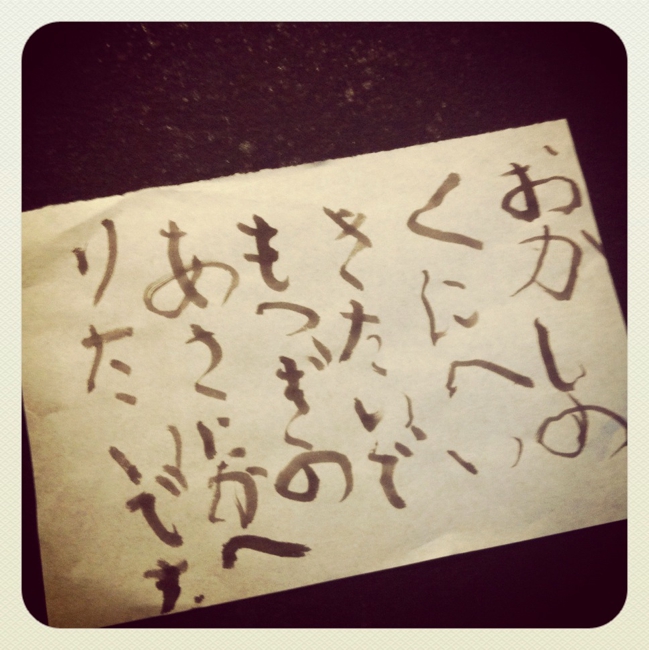 おかしの
くにへい
きたいで
もつぎの
あさにかへ
りたいです